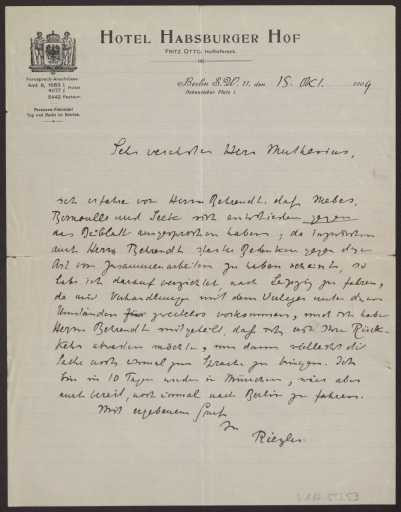 HOTEL HABSBURGER HOF
FRITZ OTTO, Hoflieferant.
Fernsprech-Anschlüsse:
Amt 6,
Hotel
Restaur.
Personen-Fahrstuhl
Tag und Nacht im Betrieb.
Berlin S.W. 11, den 15. Okt. 1909
Askanischer Platz 1.
Sehr verehrter Herr Muthesius,
ich erfahre von Herrn Behrendt, dass Mebes,
Bernoulli und Seeck sich entschieden gegen
das Beiblatt ausgesprochen haben; da inzwischen
auch Herr Behrendt starke Bedenken gegen diese
Art von Zusammenarbeiten zu haben scheint, so
habe ich darauf verzichtet, nach Leipzig zu fahren,
da mir Verhandlungen mit dem Verleger unter diesen
Umständen zwecklos vorkommen, und ich habe
Herrn Behrendt mitgeteilt, dass ich erst Ihre Rück-
kehr abwarten möchte, um dann vielleicht die
Sache noch einmal zur Sprache zu bringen. Ich
bin in 10 Tagen wieder in München, wäre aber
auch bereit, noch einmal nach Berlin zu fahren.
Mit ergebenem Gruß
Ihr
Riezler